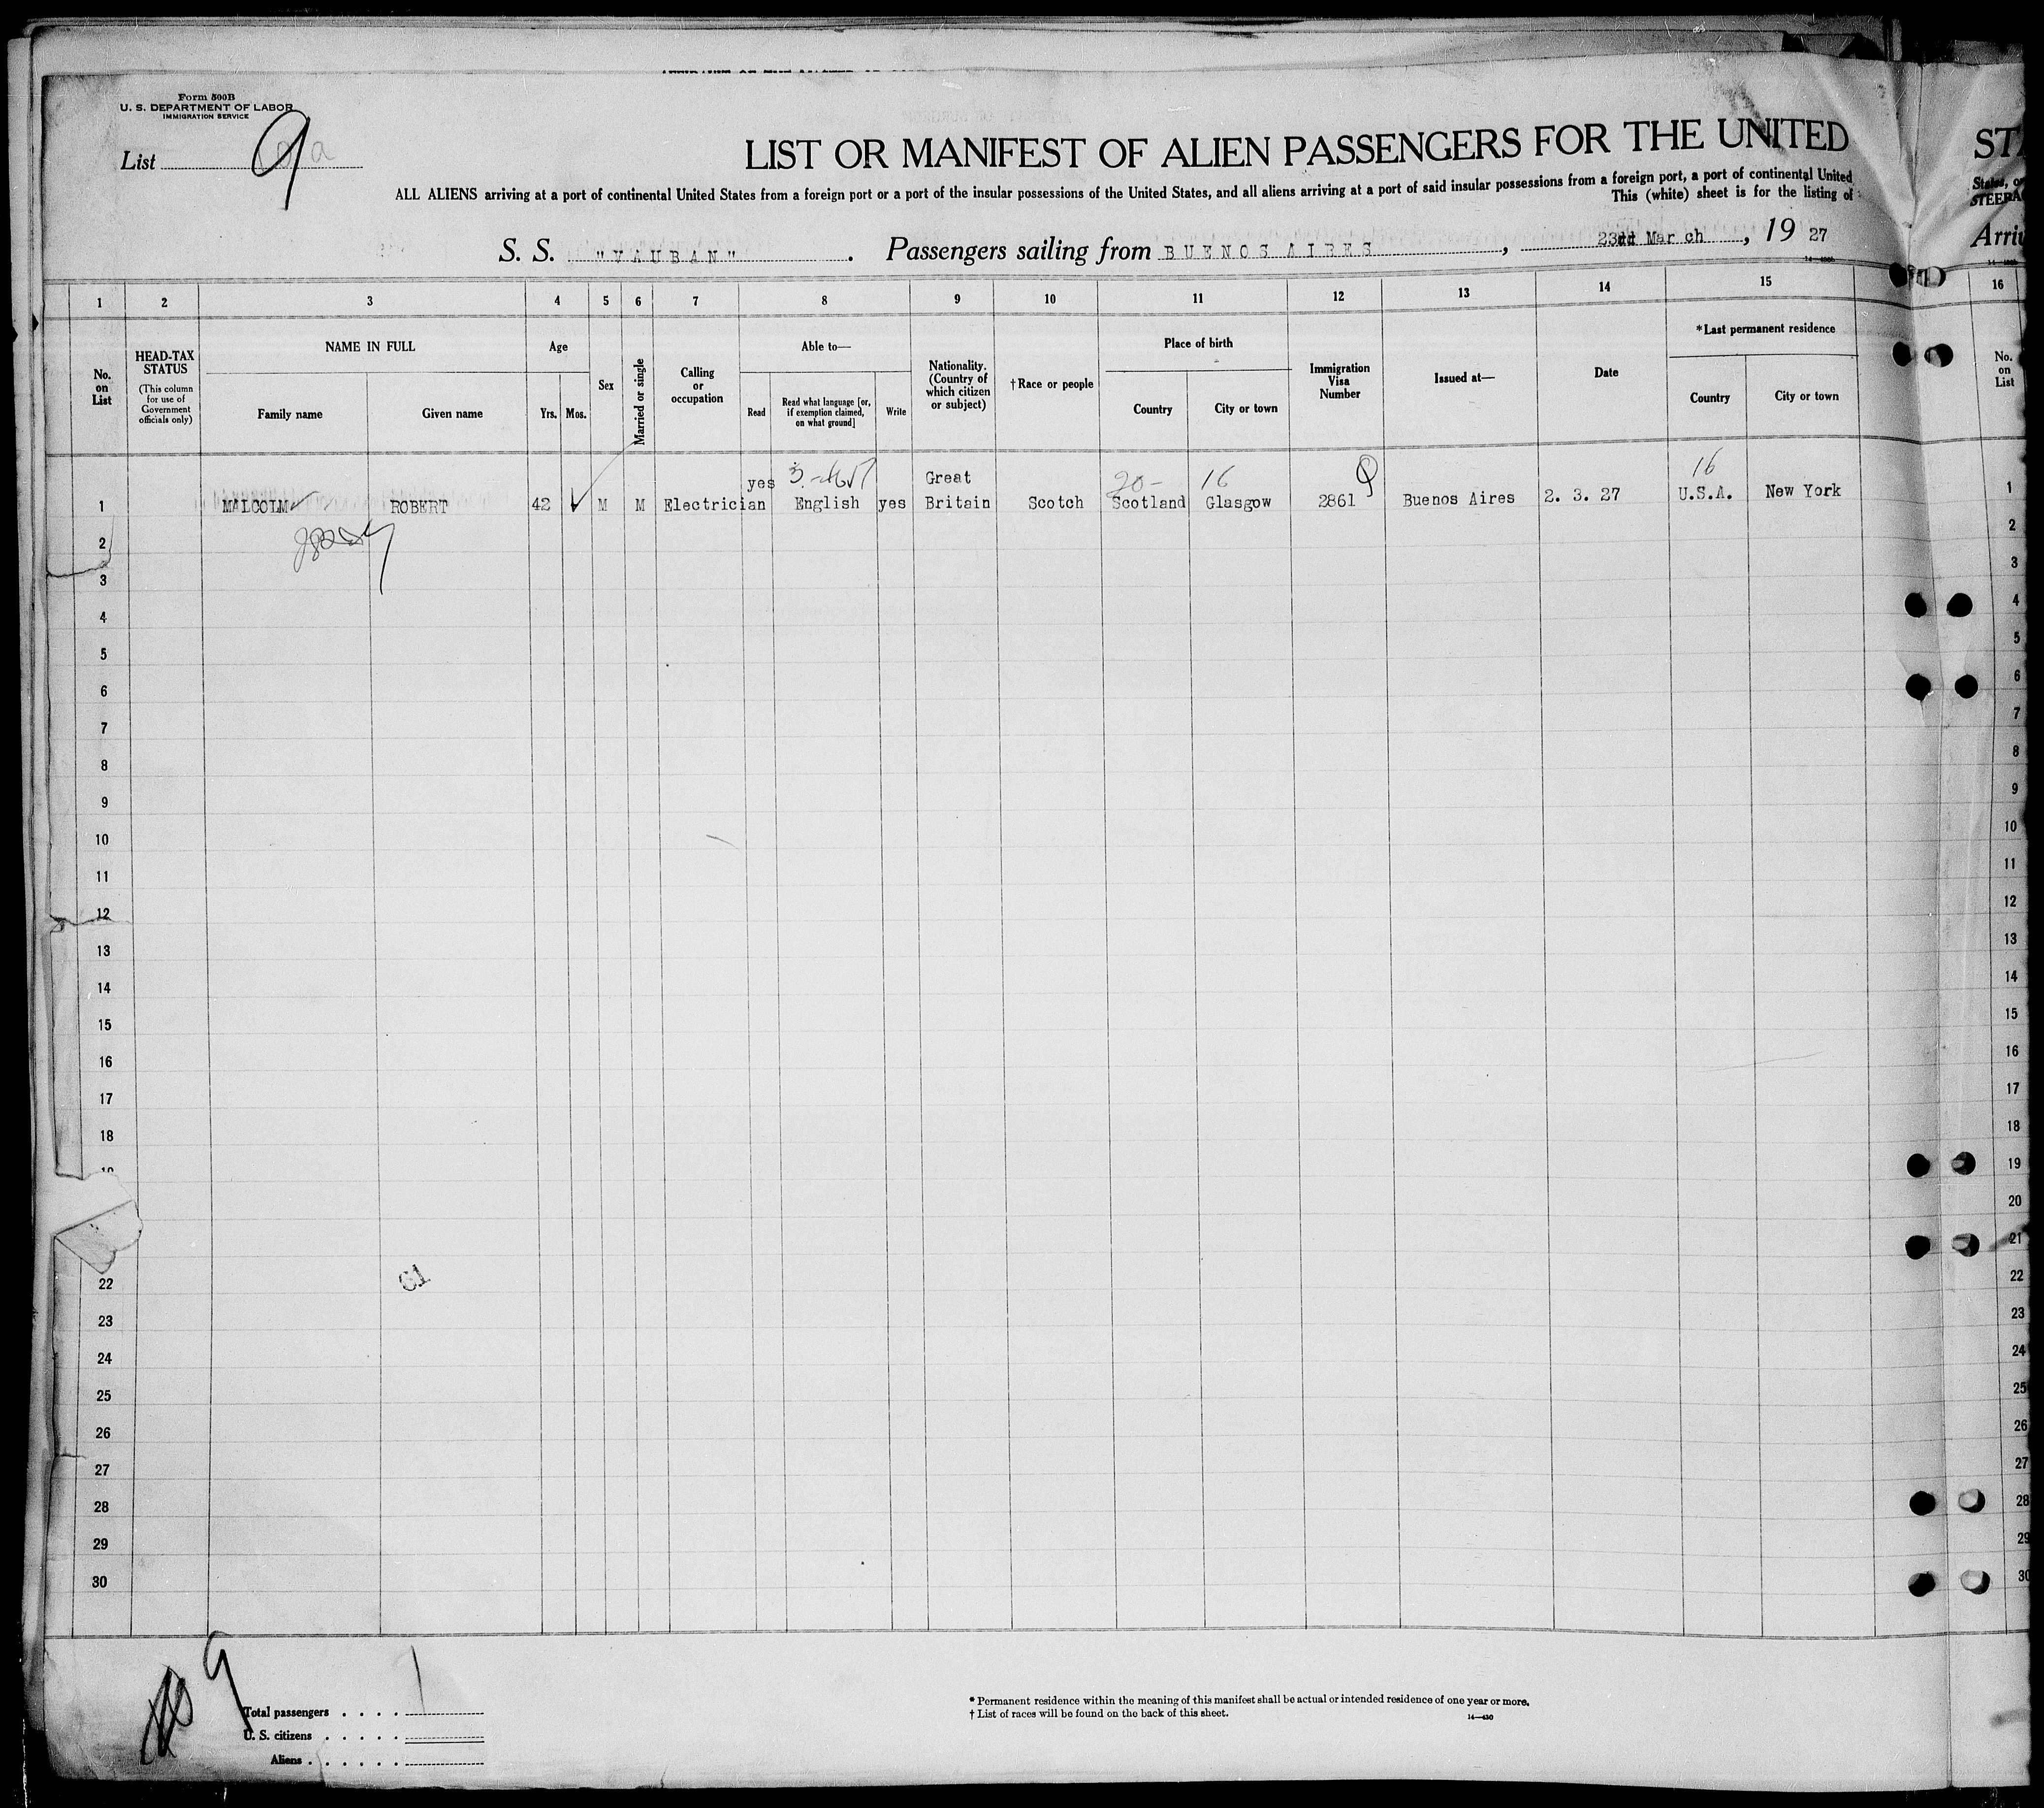 Form 500B
U. S. DEPARTMENT OF LABOR
IMMIGRATION SERVICE
List 9
LIST OR MANIFEST OF ALIEN PASSENGERS FOR THE UNITED
ST
ALL ALIENS arriving at a port of continental United States from a foreign port or a port of the insular possessions of the United States, and all aliens arriving at a port of said insular possessions from a foreign port, a port of continental United
States, o
This (white) sheet is for the listing of
STEERA
S. S. "VAUBAN". Passengers sailing from BUENOS AIRES, 23rd March, 1927
Arri
1 2 3 4 5 6 7 8 9 10 11 12 13 14 15 16
No. on List
HEAD-TAX STATUS
(This column for use of Government officials only)
NAME IN FULL
Family name Given name
Age
Yrs. Mos.
Sex
Married or single
Calling or occupation
Able to—
Read
Read what language [or, if exemption claimed, on what ground]
Write
Nationality. (Country of which citizen or subject)
†Race or people
Place of birth
Country City or town
Immigration Visa Number
Issued at—
Date
*Last permanent residence
Country City or town
No. on List
20- 16 16
1 MALCOLM ROBERT 42 M M Electrician yes English yes Great Britain Scotch Scotland Glasgow 2861 Buenos Aires 2. 3. 27 U.S.A. New York 1
2 2
3 3
4 4
5 5
6 6
7 7
8 8
9 9
10 10
11 11
12 12
13 13
14 14
15 15
16 16
17 17
18 18
19
20
21
22 22
23 23
24 24
25 25
26 26
27 27
28 28
29 29
30 30
61
9
Total passengers . . . . 1
U. S. citizens . . . . .
Aliens . . . . . .
* Permanent residence within the meaning of this manifest shall be actual or intended residence of one year or more.
† List of races will be found on the back of this sheet.
14—430